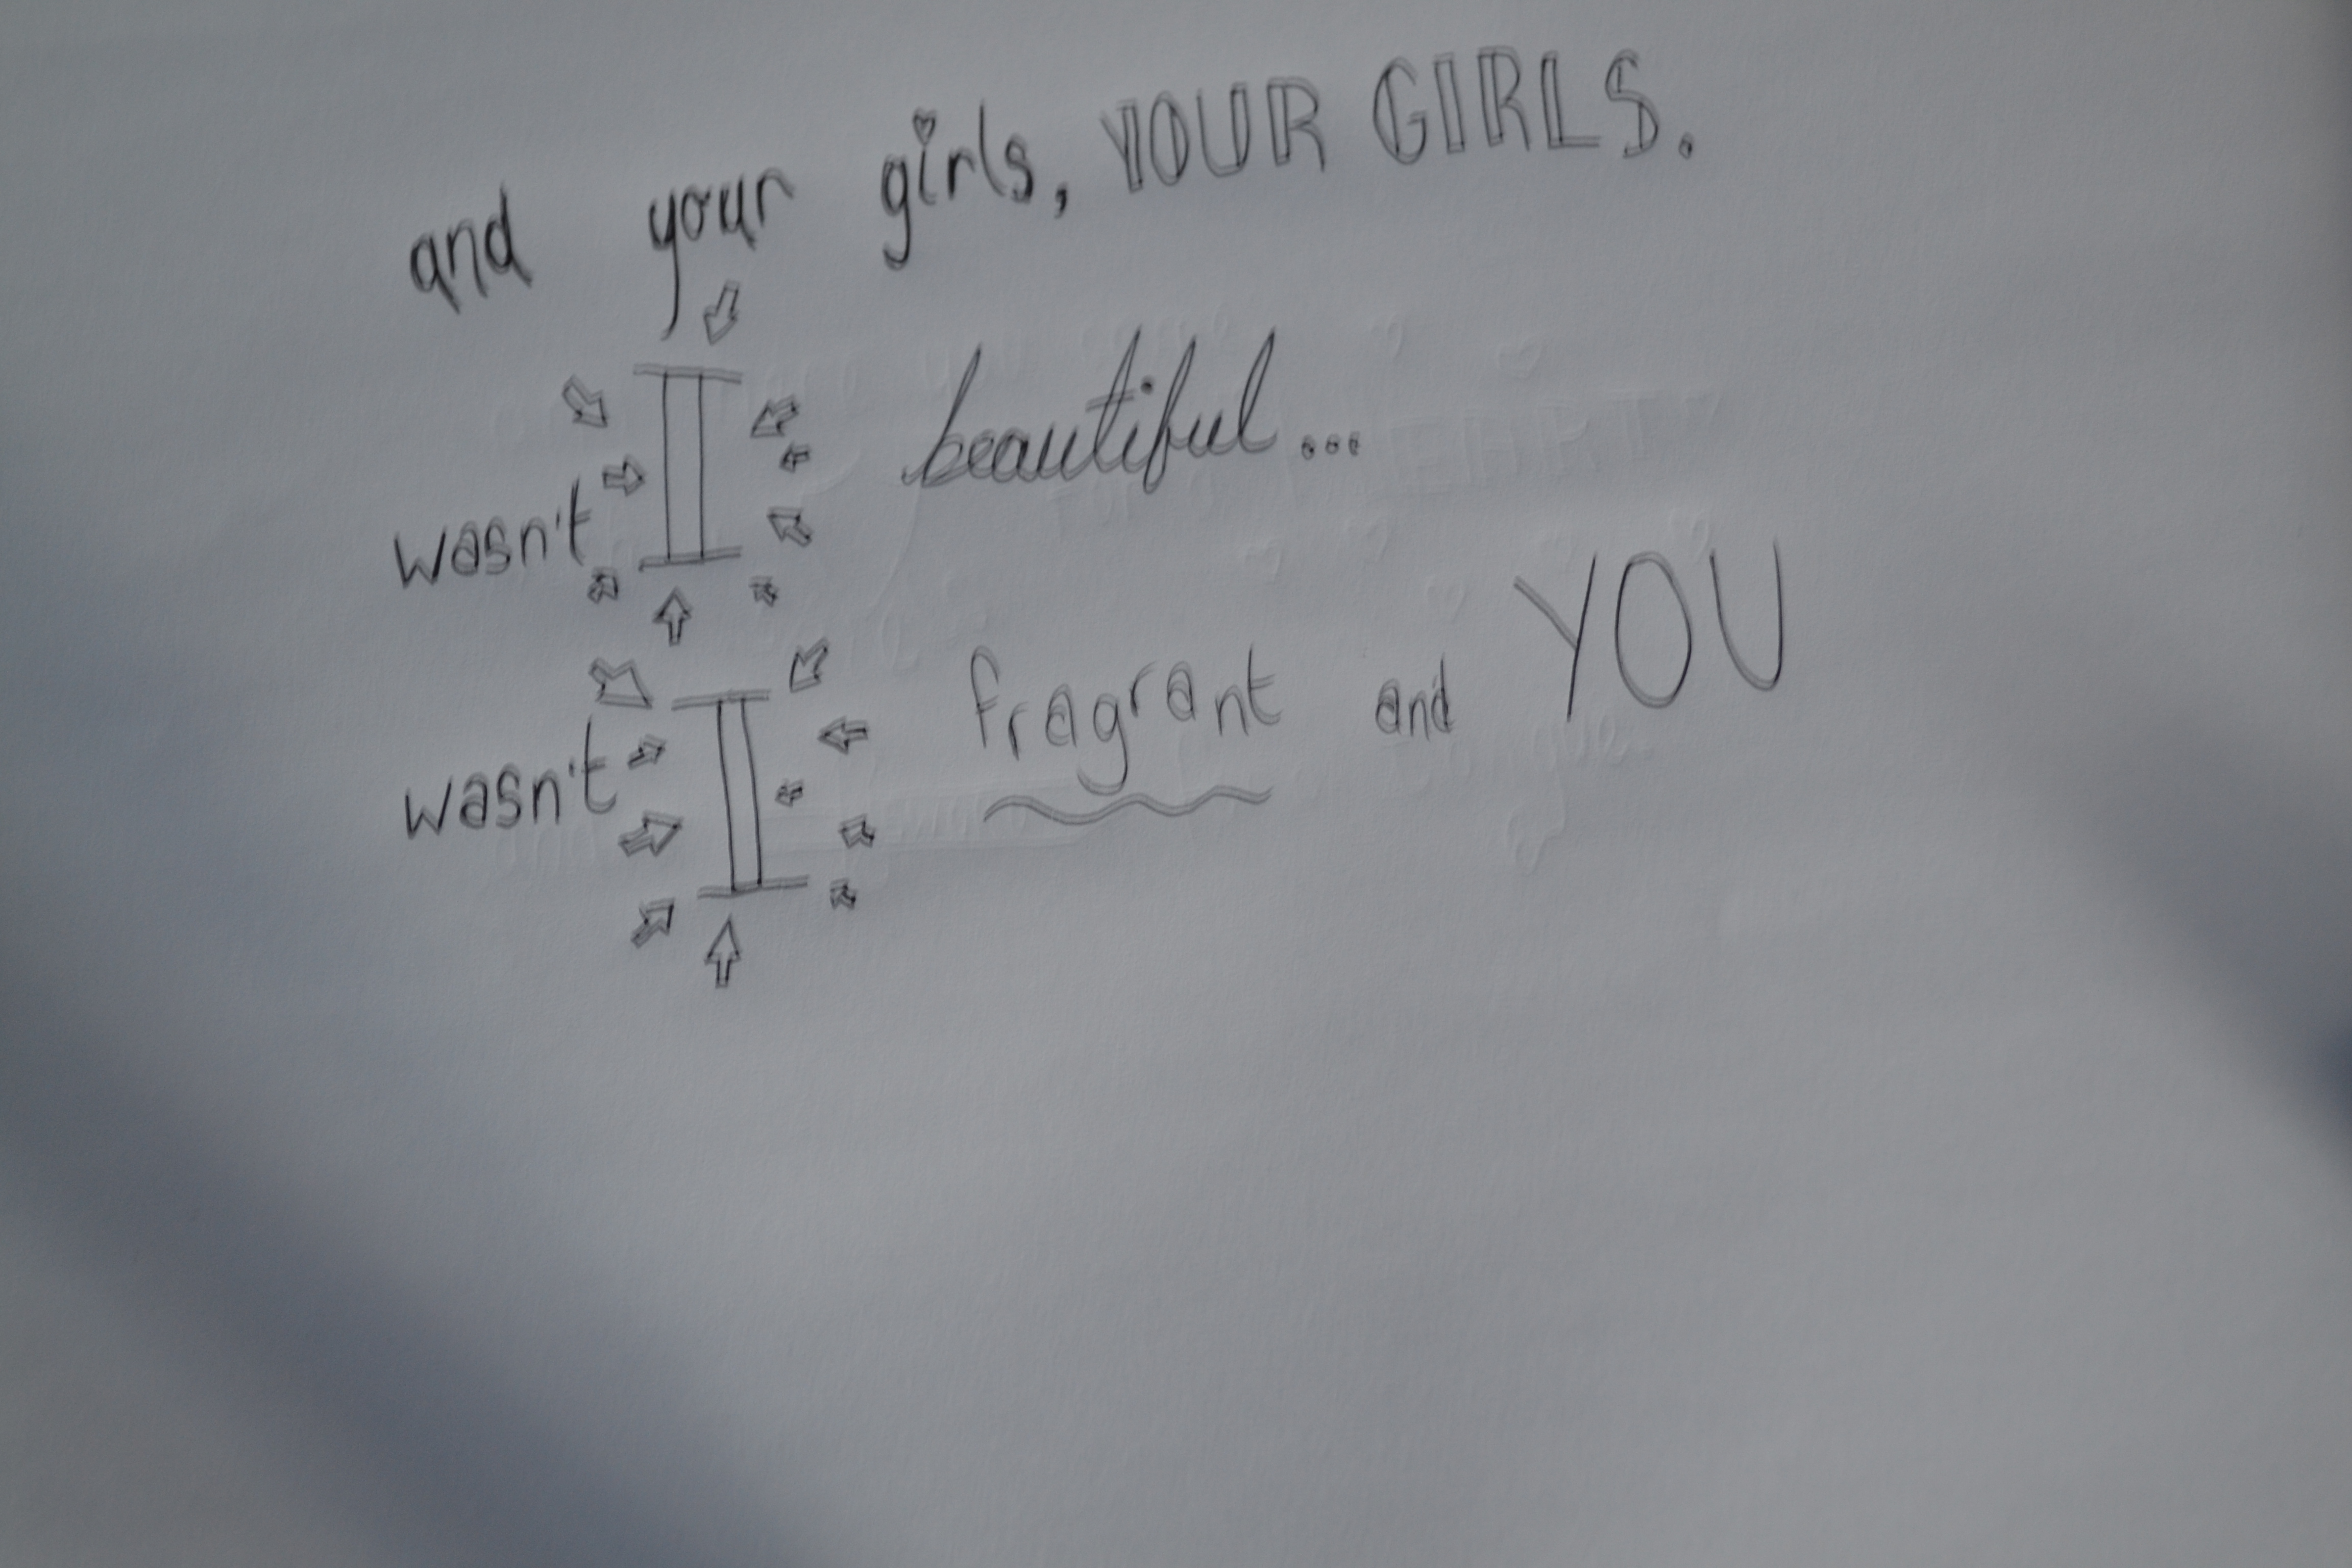 and your girls, YOUR GIRLS.
wasn't I beautiful...
wasn't I fragrant and YOU